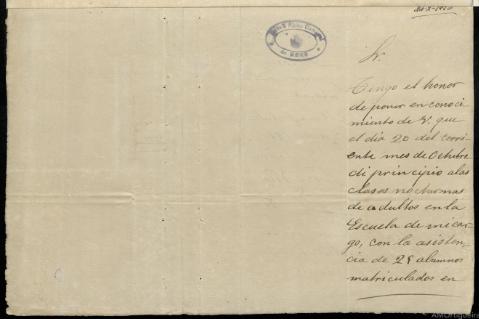 Sr.
Tengo el honor
de poner en conoci
miento de V. que
el dia 20 del corri
ente mes de Octubre
di principio a las
clases nocturnas
de adultos en la
Escuela de mi car-
go, con la asisten-
cia de 28 alumnos
matriculados en